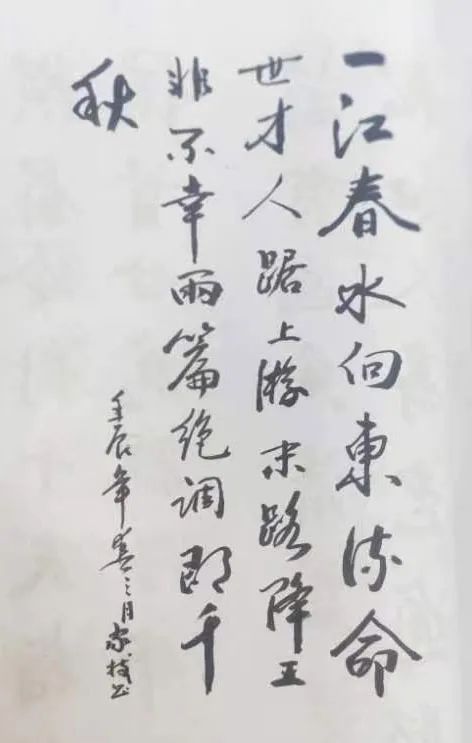 一江春水向東流命
世才人踞上游末路降王
非不幸兩篇绝调郎千
秋
壬辰年春三月家枝书